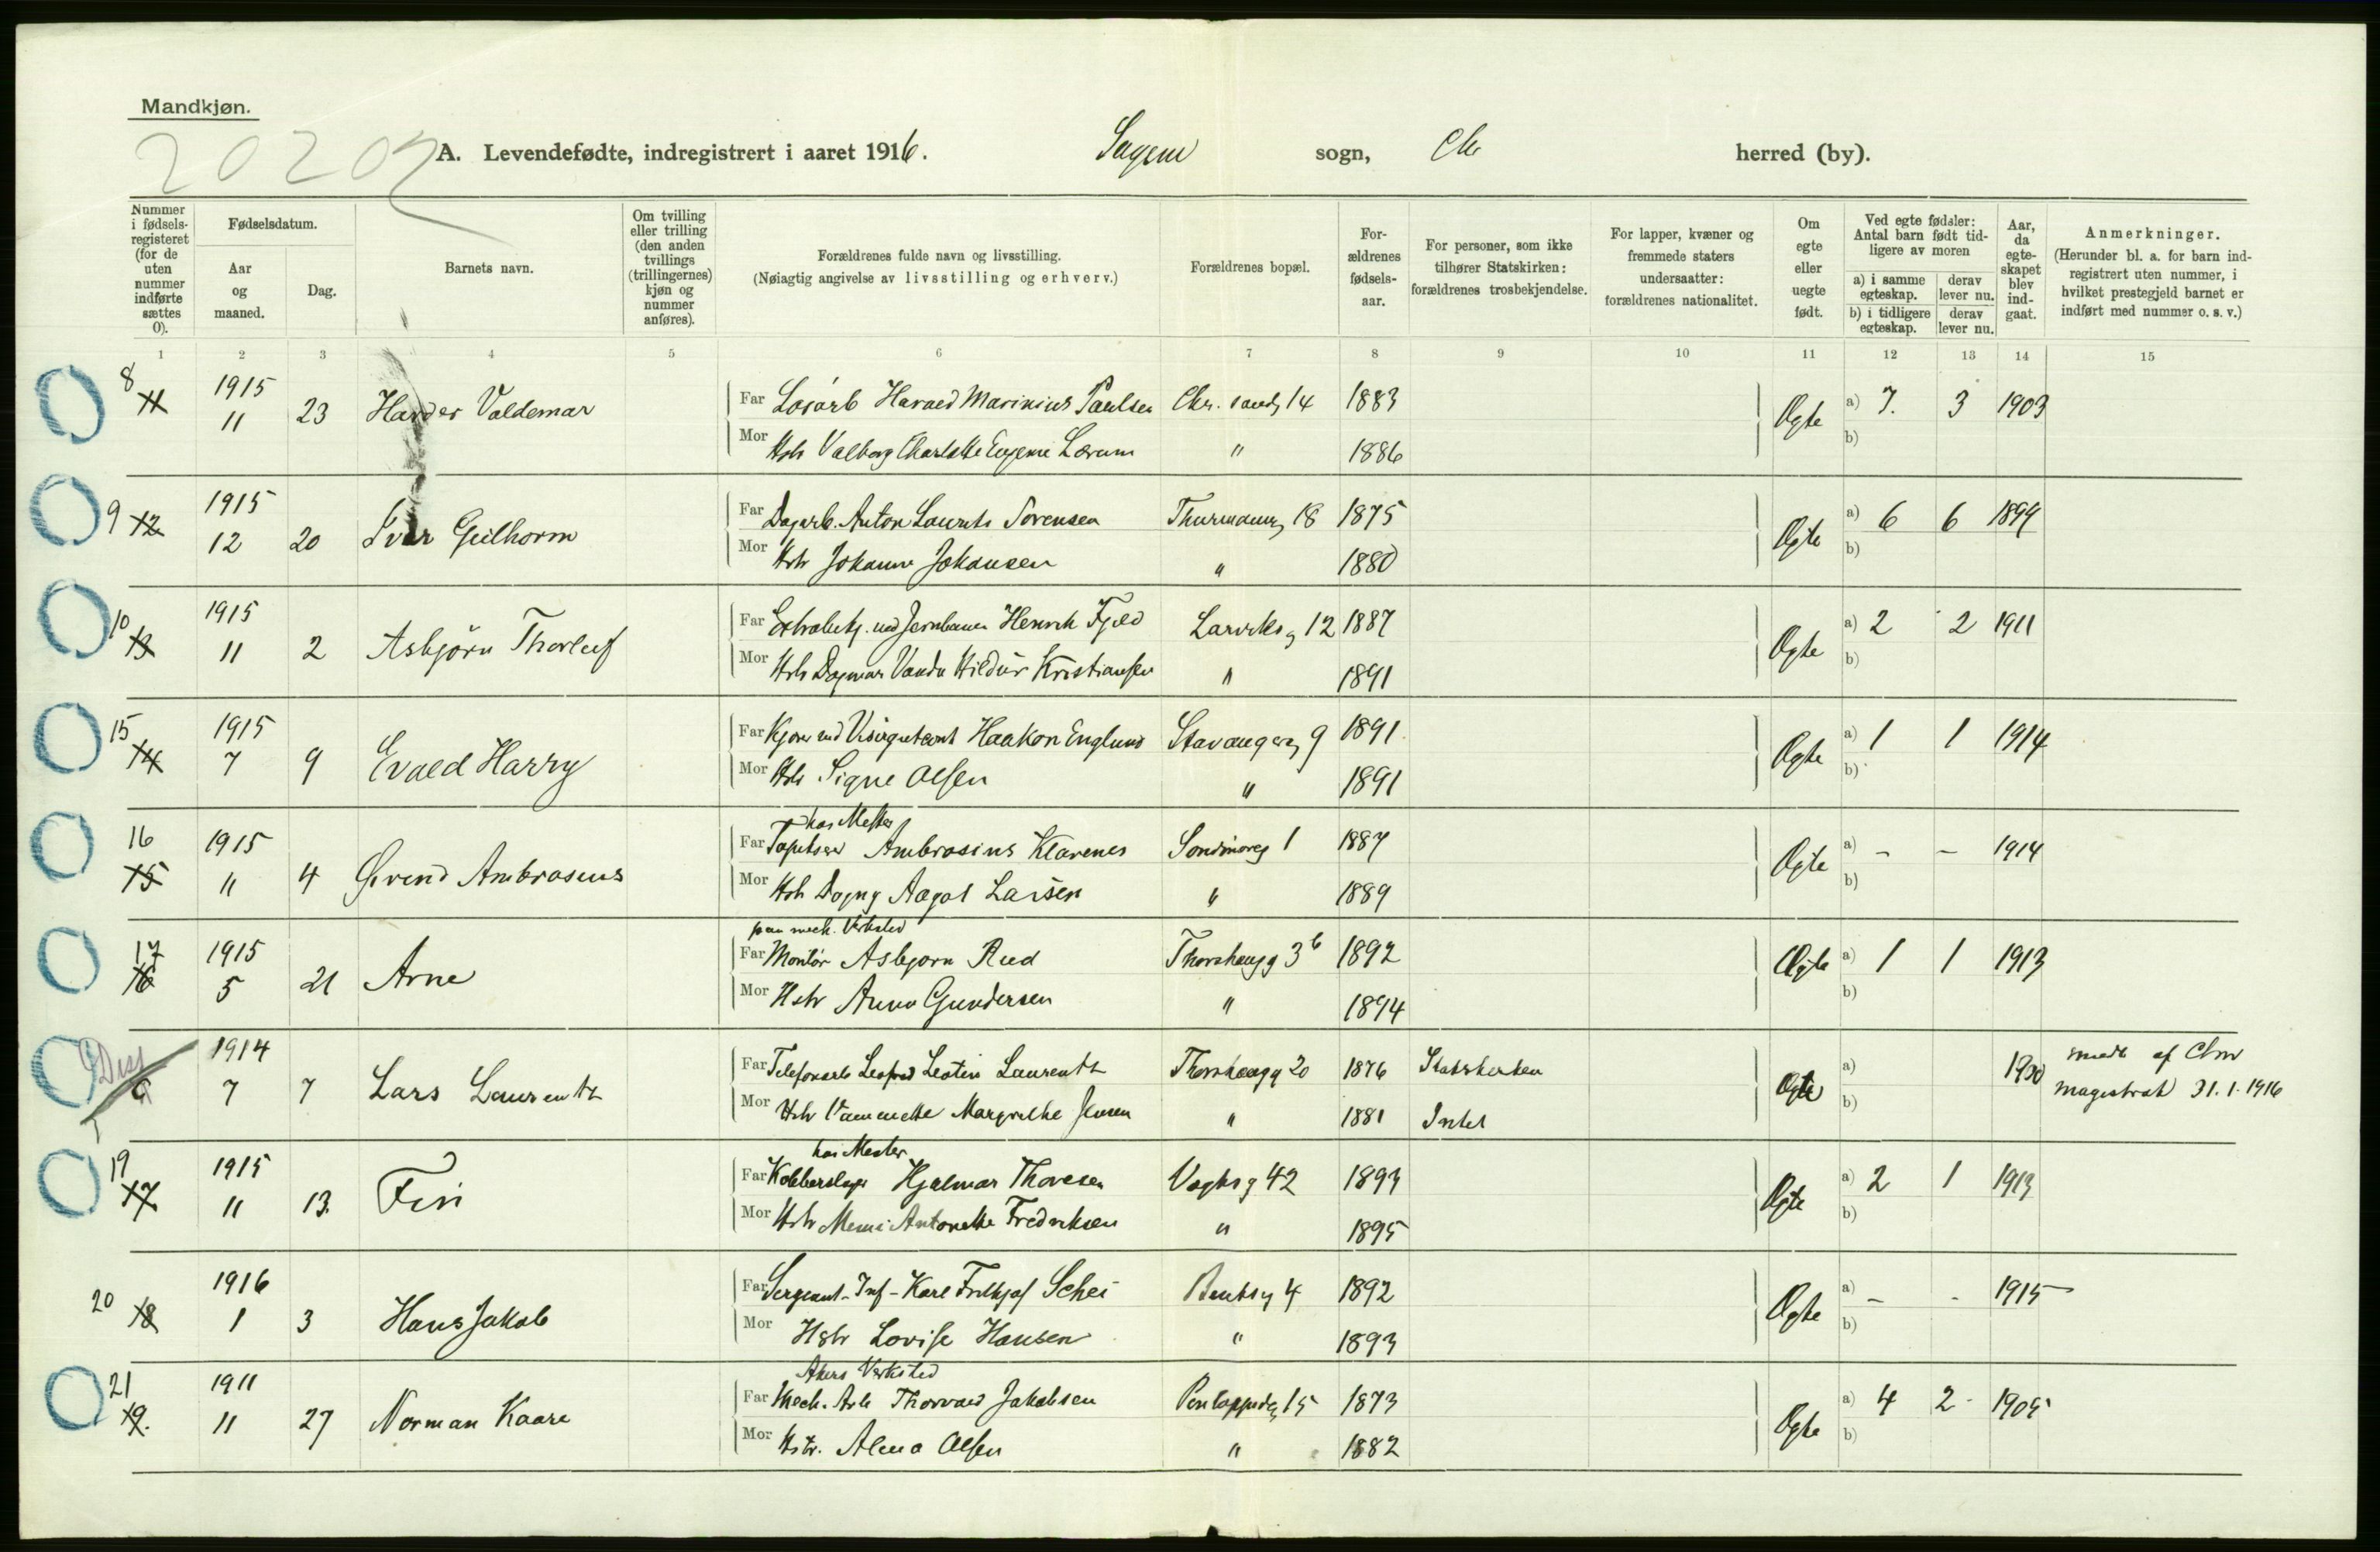 Mandkjøn.
20202
A. Levendefødte, indregistrert i aaret 1916. Sagene sogn, Chr herred (by).
Nummer i fødsels-registeret (for de uten nummer indførte sættes 0).
Fødselsdatum.
Aar og maaned.
Dag.
Barnets navn.
Om tvilling eller trilling (den anden tvillings (trillingernes) kjøn og nummer anføres).
Forældrenes fulde navn og livsstilling.
(Nøiagtig angivelse av livsstilling og erhverv.)
Forældrenes bopæl.
For-ældrenes fødsels-aar.
For personer, som ikke tilhører Statskirken: forældrenes trosbekjendelse.
For lapper, kvæner og fremmede staters undersaatter: forældrenes nationalitet.
Om egte eller uegte født.
Ved egte fødsler: Antal barn født tid-ligere av moren
a) i samme egteskap. derav lever nu.
b) i tidligere egteskap. derav lever nu.
Aar, da egte-skapet blev ind-gaat.
Anmerkninger.
(Herunder bl. a. for barn ind-registrert uten nummer, i hvilket prestegjeld barnet er indført med nummer o. s. v.)
1 2 3 4 5 6 7 8 9 10 11 12 13 14 15
8 11 1915 11 23 Valdemar Far Harald Marinius Paulsen Chr. sandg 14 1883 Egte a) 7. 3 1903
Mor Hstr Valborg Charlotte Eugenie Lærum " 1886 b)
9 12 1915 12 20 Ivar Far Dagarb. Anton Laurits Sørensen Thurmannsg 18 1875 Egte a) 6 6 1899
Mor Hstr Johanne Johansen " 1880 b)
10 13 1915 11 2 Asbjørn Thorleif Far Extrabetj. ved Jernbanen Henrik Fjeld Larviksg 12 1887 Egte a) 2 2 1911
Mor Hstr Dagmar Vanda Hildur Kristiansen " 1891 b)
15 14 1915 7 9 Evald Harry Far Kjører ved Haakon Englund Stavangerg 9 1891 Egte a) 1 1 1914
Mor Hstr Signe Olsen " 1891 b)
hos Mester
16 15 1915 11 4 Øivind Ambrosius Far Tapetserer Ambrosius Klavenes Søndmøreg 1 1887 Egte a) – – 1914
Mor Hstr Dagny Aagot Larsen " 1889 b)
paa mech. Verksted
17 16 1915 5 21 Arne Far Montør Asbjørn Rud Thorshaugg 3b 1892 Egte a) 1 1 1913
Mor Hstr Anna Gundersen " 1894 b)
Diss 0 1914 7 7 Lars Laurentz Far Telefonarb Laurentz Thorshaugg 20 1876 Statskirken Egte a) 1900 medt af Chra
Mor Hstr Margrethe Jensen " 1881 Intet b) magistrat 31.1.1916
hos Mester
19 17 1915 11 13. Finn Far Kobberslager Hjalmar Thoresen Vogtsg 42 1893 Egte a) 2 1 1913
Mor Hstr Antonette Fredriksen " 1895 b)
20 18 1916 1 3 Hans Jakob Far Sergeant-Inf- Karl Fridtjof Schei Bentsg 4 1892 Egte a) – - 1915
Mor Hstr Lovise Hansen " 1893 b)
Akers Verksted
21 19. 1911 11 27 Norman Kaare Far Mech. Arb Thorvald Jakobsen 15 1873 Egte a) 4 2 1905
Mor Hstr. Alma Olsen " 1882 b)